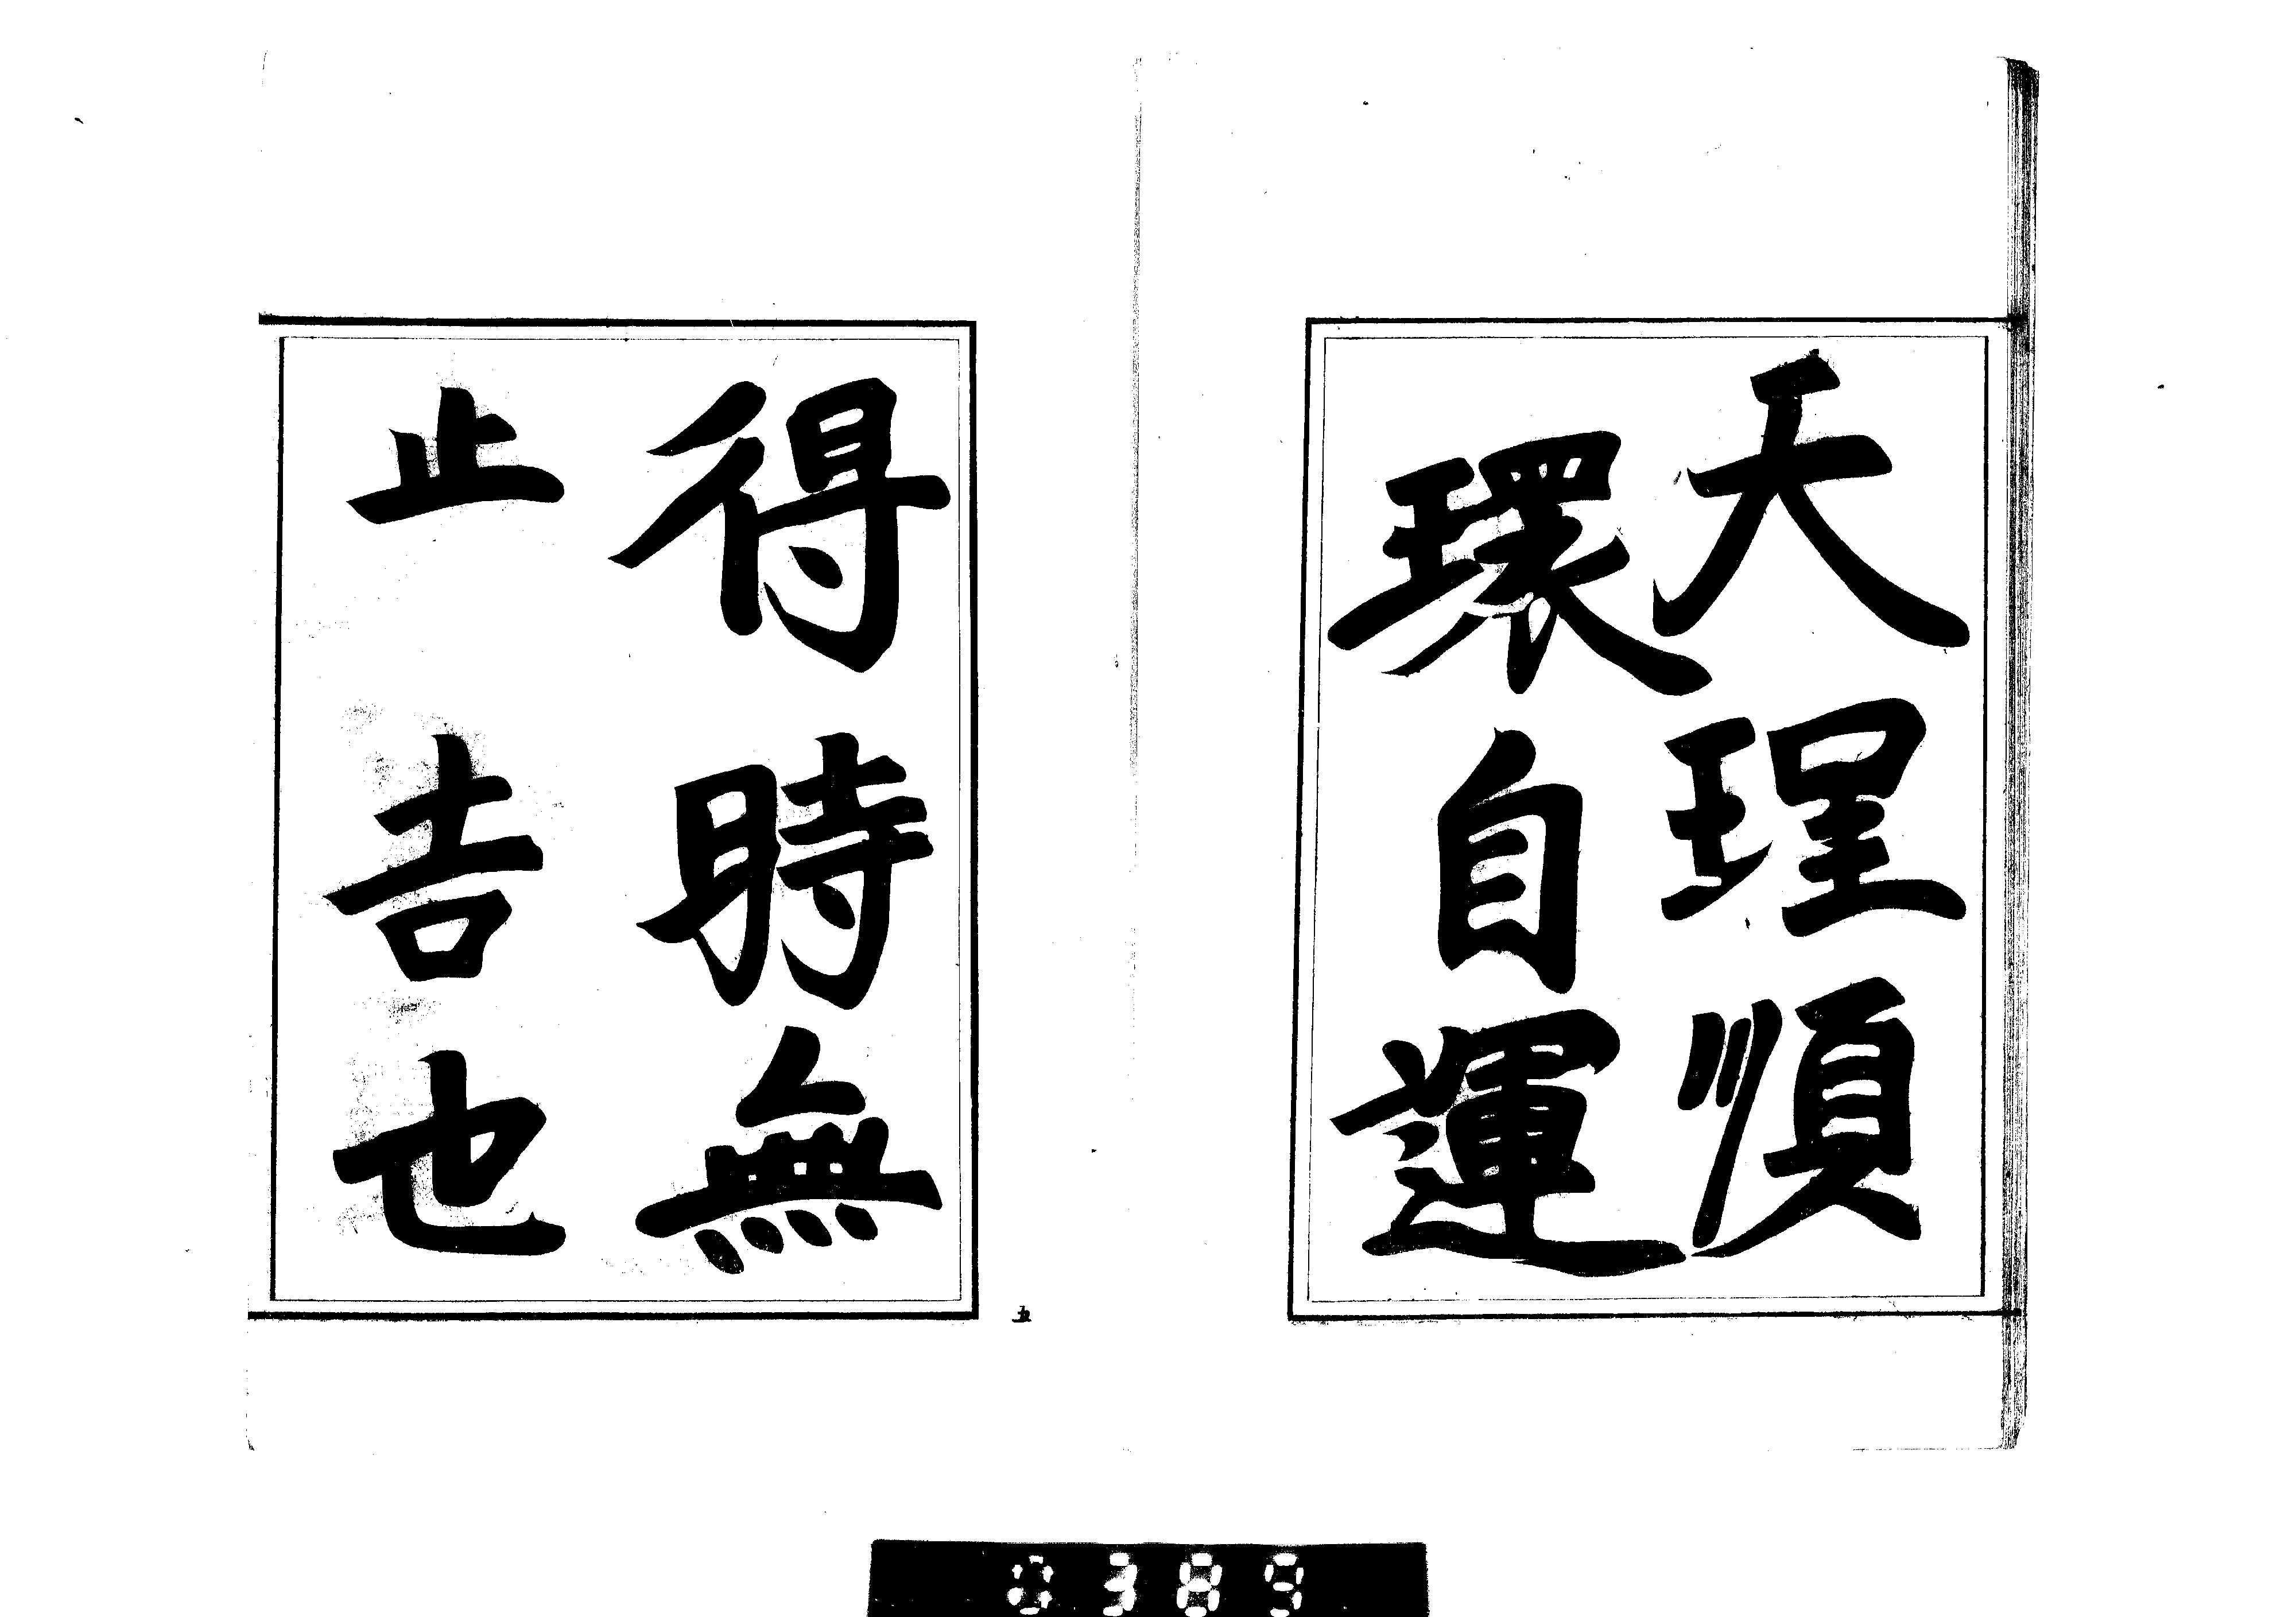 天理順
環自運
得時無
止吉也
0389